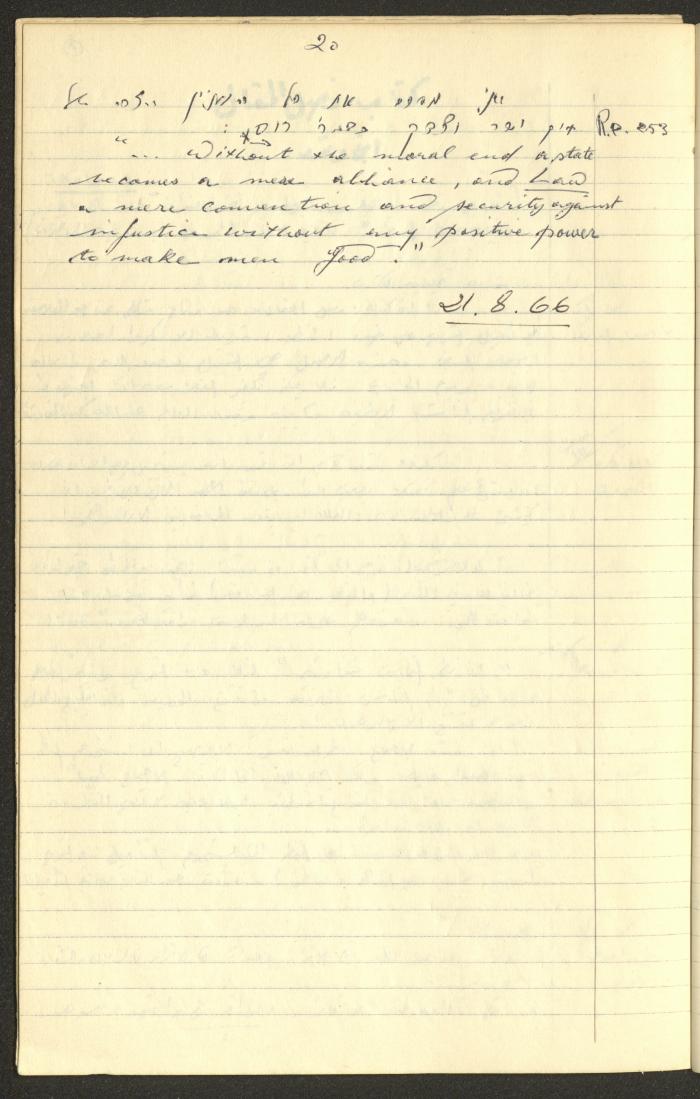 20
ואני מדגיש את כל העניין הזה של
דין יושר וצדק כדברי רוס: R.P. 253
"... Without the moral end a state
becomes a mere alliance, and Law
a mere convention and security against
injustice without any positive power
to make men good."
21.8.66